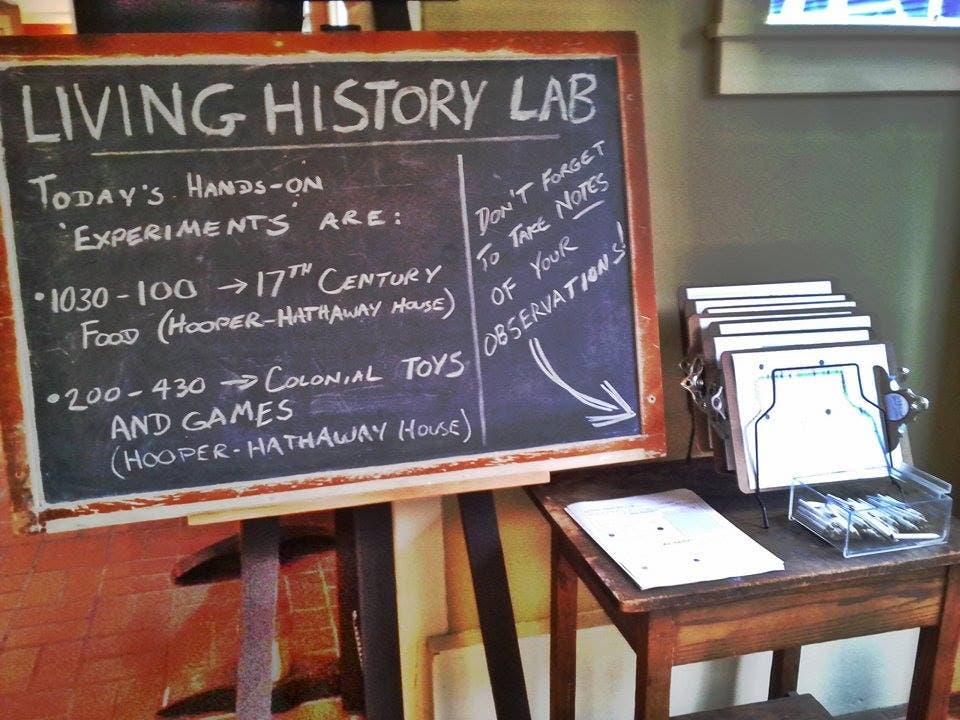 LIVING HISTORY LAB
TODAY'S HANDS-ON
'EXPERIMENTS' ARE:
• 1030-100 → 17TH CENTURY
FOOD (HOOPER-HATHAWAY HOUSE)
• 200-430 → COLONIAL TOYS
AND GAMES
(HOOPER-HATHAWAY HOUSE)
DON'T FORGET
TO TAKE NOTES
OF YOUR
OBSERVATIONS!